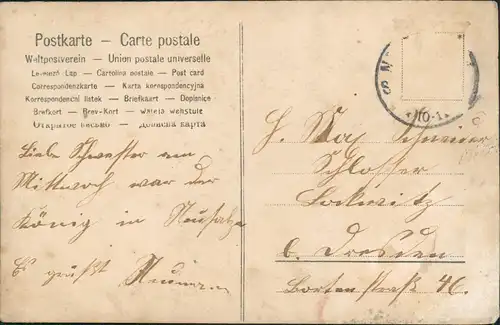 Postkarte — Carte postale
Weltpostverein — Union postale universelle
Levelező-Lap — Cartolina postale — Post card
Correspondenzkarte — Karta korrespondencyjna
Korrespondenční listek — Briefkaart — Dopisnice
Brefkort — Brev-Kort
Открытое письмо — Дописна карта
Liebe Schwester am
Mittwoch war der
König in Neusalza
Es grüßt Neumann
H. Max Schneider
Schlosser
Lockwitz
b. Dresden
Bortenstraß 46.